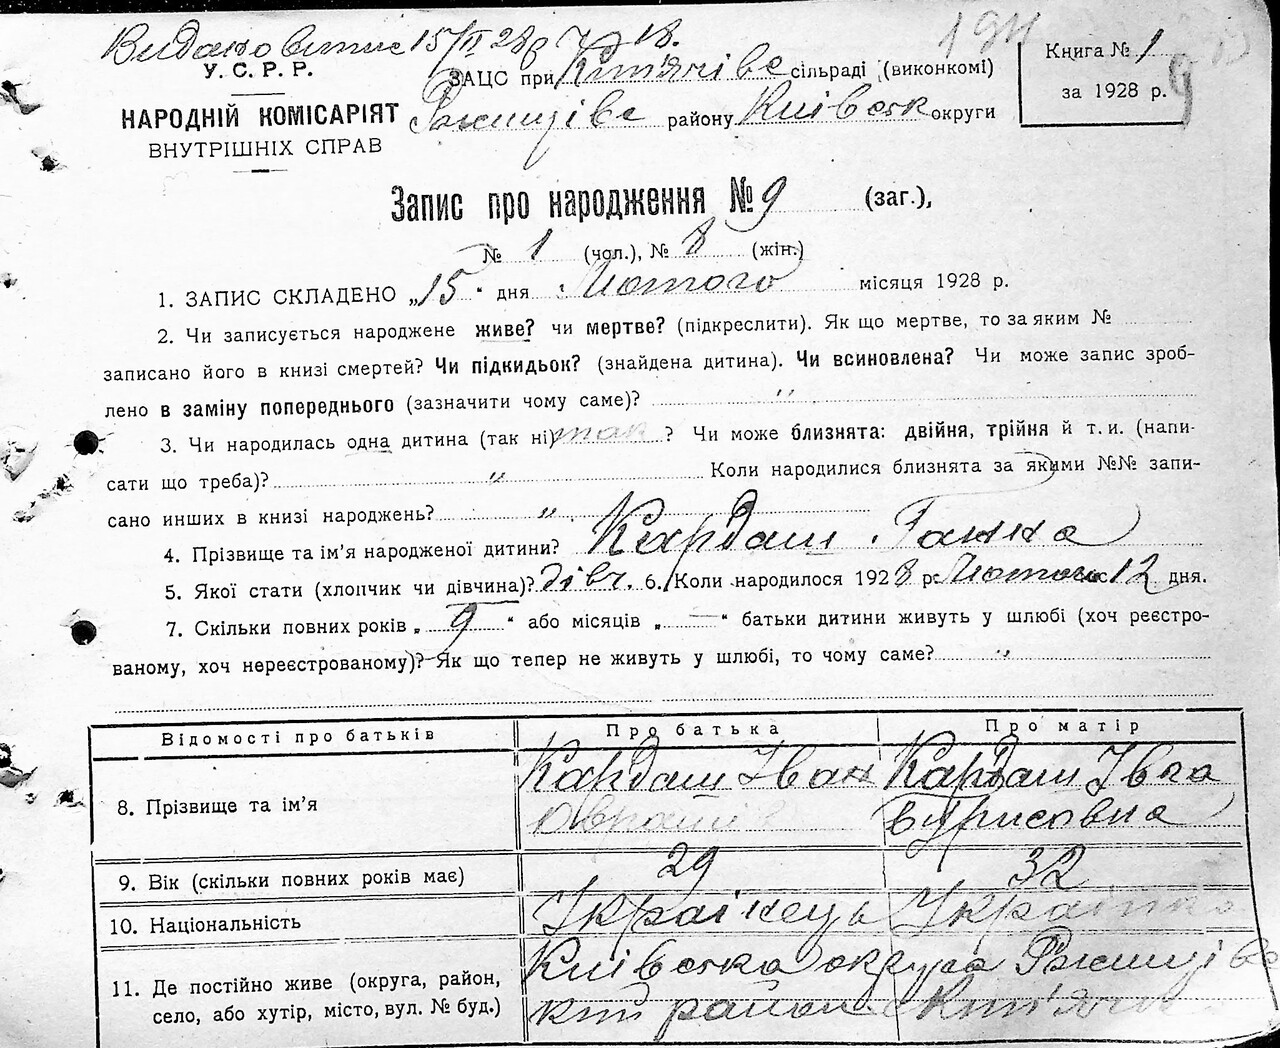 Видано витяг 15/II 28 р № 18.
У. С. Р. Р.
НАРОДНІЙ КОМІСАРІЯТ
ВНУТРІШНІХ СПРАВ
ЗАЦС при сільраді (виконкомі)
Ржищівс району Київськ округи
Книга № 1
за 1928 р.
Запис про народження № 9 (заг.),
№ 1 (чол.), № 8 (жін.)
1. ЗАПИС СКЛАДЕНО „15" дня Лютого місяця 1928 р.
2. Чи записується народжене живе? чи мертве? (підкреслити). Як що мертве, то за яким №
записано його в книзі смертей? Чи підкидьок? (знайдена дитина). Чи всиновлена? Чи може запис зроб-
лено в заміну попереднього (зазначити чому саме)? "
3. Чи народилась одна дитина (так ні) так ? Чи може близнята: двійня, трійня й т. и. (напи-
сати що треба)? " Коли народилися близнята за якими №№ запи-
сано инших в книзі народжень? "
4. Прізвище та ім'я народженої дитини? Кардаш Ганна
5. Якої стати (хлопчик чи дівчина)? дівч. 6. Коли народилося 1928 р. Лютого 12 дня.
7. Скільки повних років „ 9 " або місяців „ — " батьки дитини живуть у шлюбі (хоч реєстро-
ваному, хоч нереєстрованому)? Як що тепер не живуть у шлюбі, то чому саме? "
Відомості про батьків Про батька Про матір
8. Прізвище та ім'я Кардаш Іван Кардаш Івга
Борисовна
9. Вік (скільки повних років має) 29 32
10. Національність Українець Українка
11. Де постійно живе (округа, район,
село, або хутір, місто, вул. № буд.)
Київська округа Ржищівс
кий район